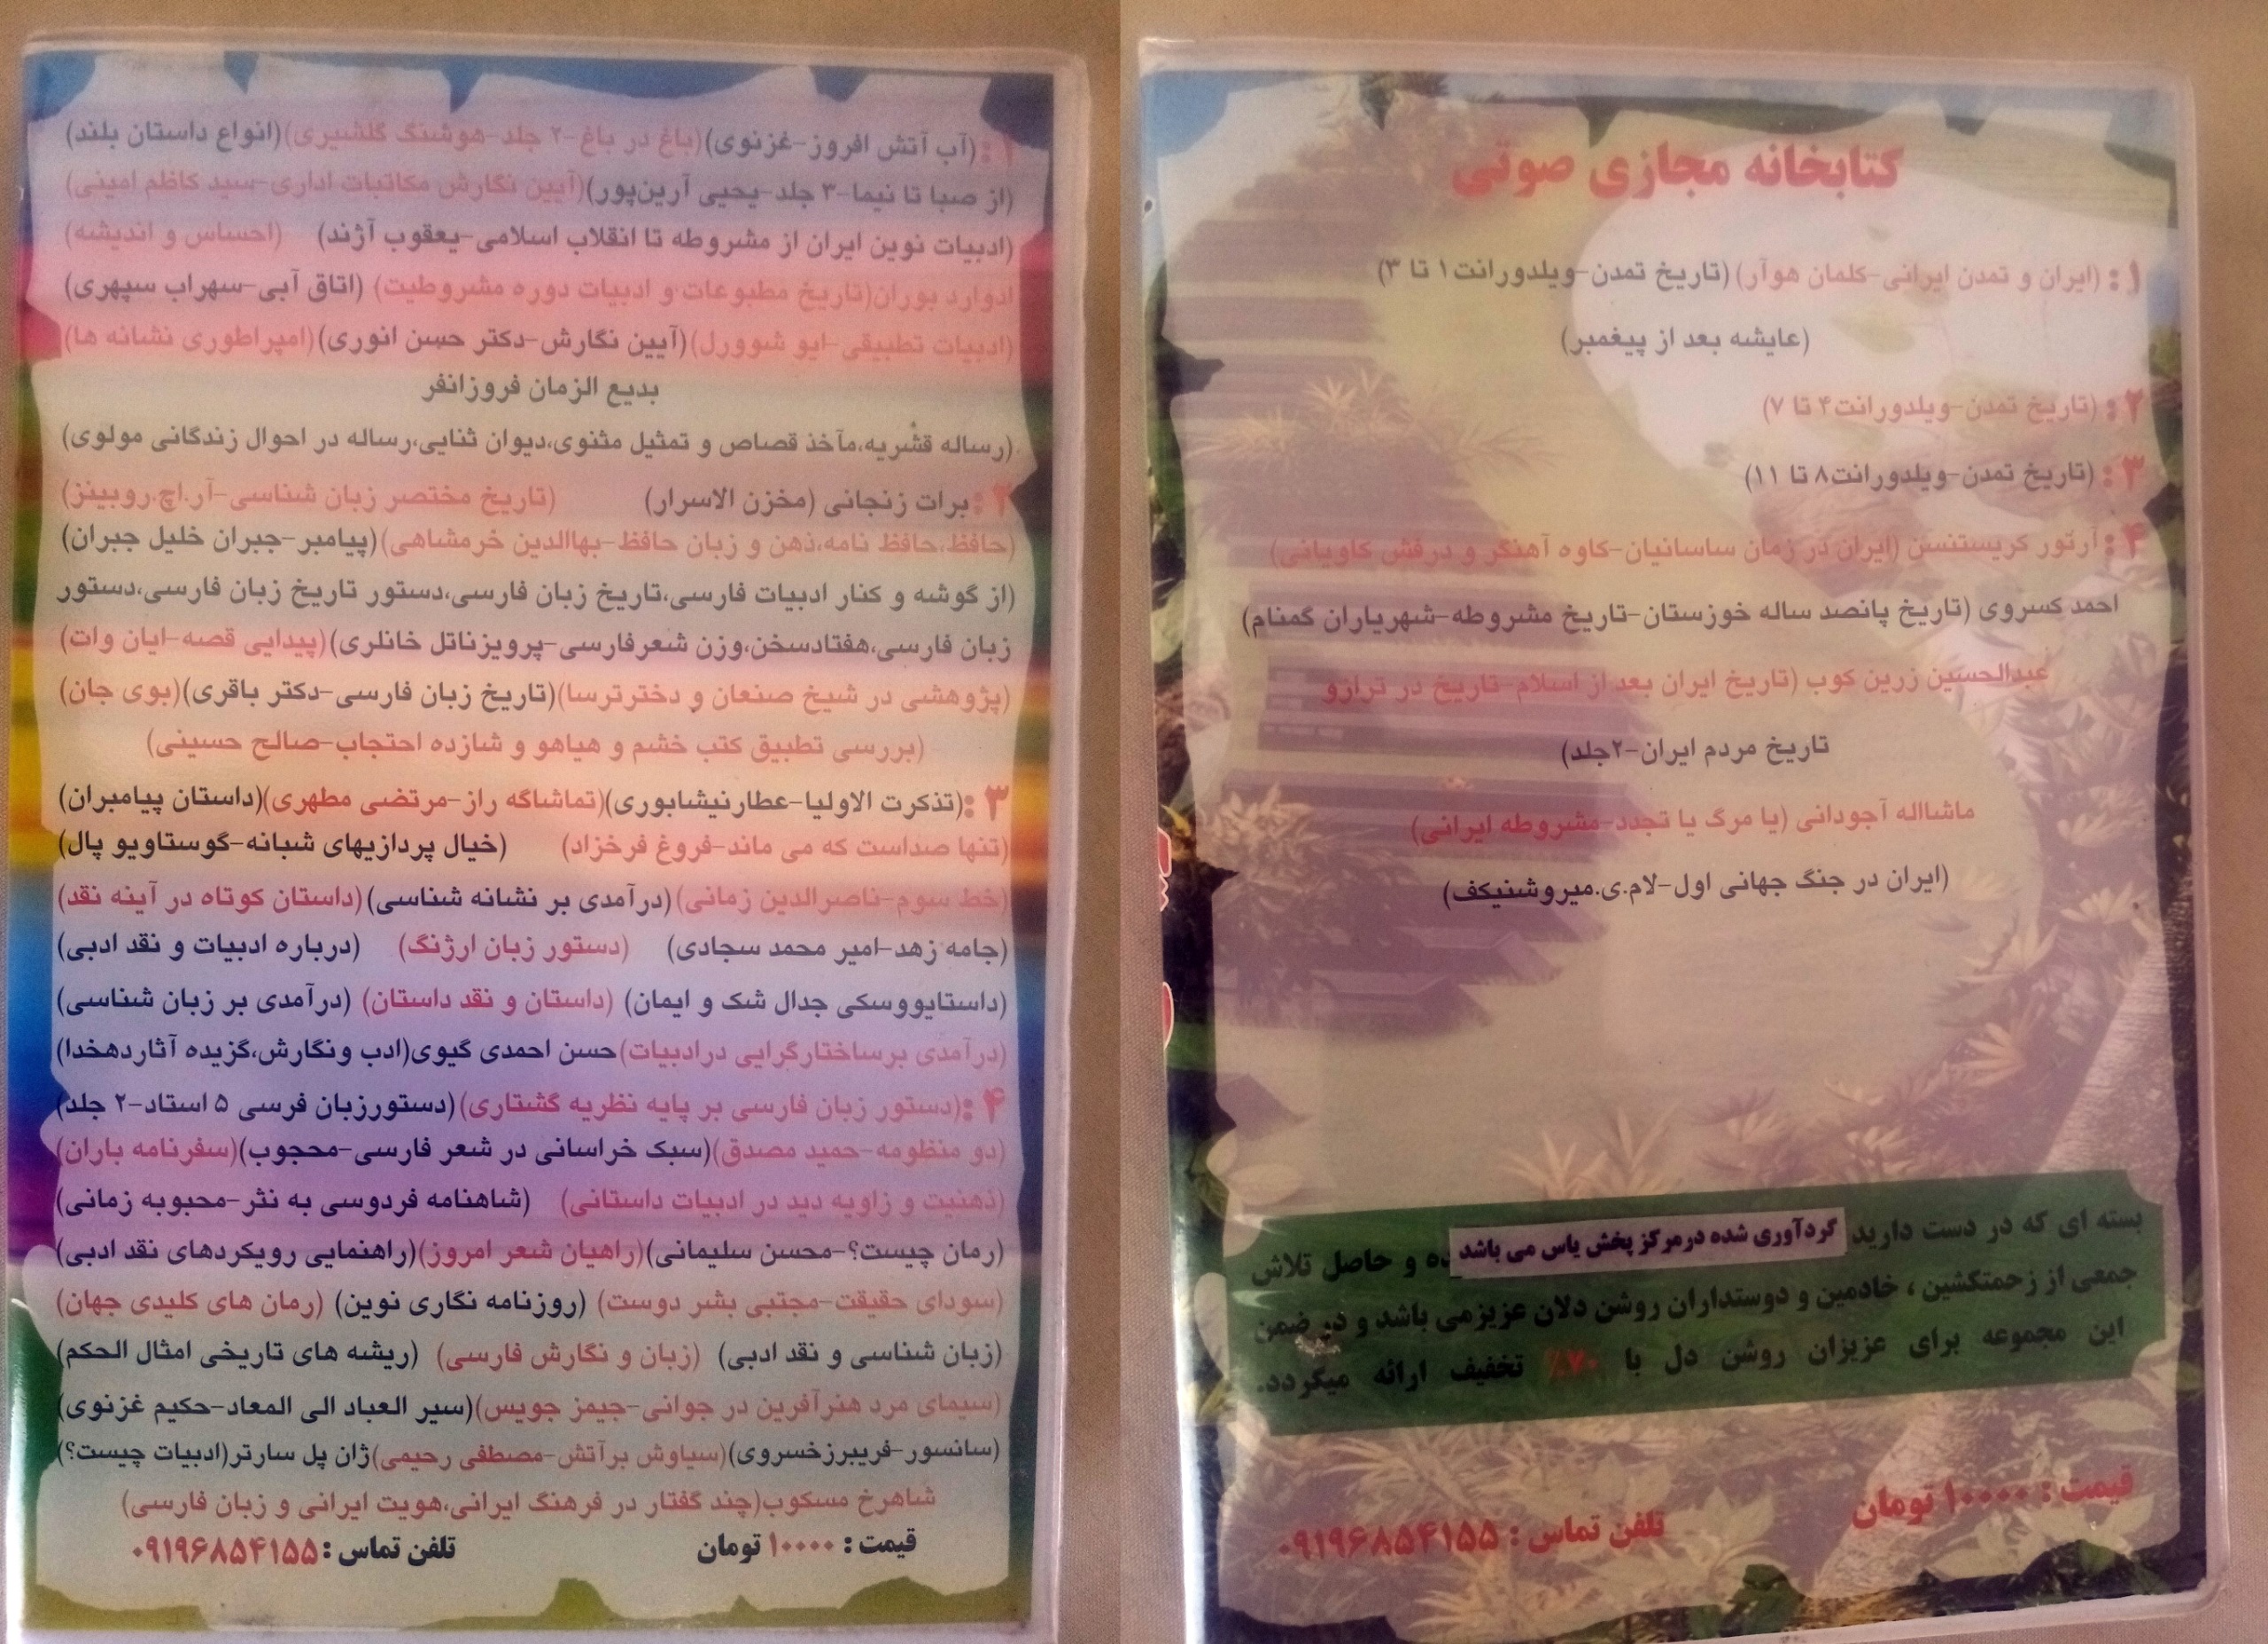 ۱: (آب آتش افروز-غزنوی)(باغ در باغ-۲ جلد-هوشنگ گلشیری)(انواع داستان بلند)
(از صبا تا نیما-۳ جلد-یحیی آرین‌پور)(آیین نگارش مکاتبات اداری-سید کاظم امینی)
(ادبیات نوین ایران از مشروطه تا انقلاب اسلامی-یعقوب آژند) (احساس و اندیشه)
ادوارد بوران(تاریخ مطبوعات و ادبیات دوره مشروطیت) (اتاق آبی-سهراب سپهری)
(ادبیات تطبیقی-ایو شوورل)(آیین نگارش-دکتر حسن انوری)(امپراطوری نشانه ها)
بدیع الزمان فروزانفر
(رساله قشریه،مآخذ قصاص و تمثیل مثنوی،دیوان ثنایی،رساله در احوال زندگانی مولوی)
۲: برات زنجانی (مخزن الاسرار) (تاریخ مختصر زبان شناسی-آر.اچ.روبینز)
(حافظ،حافظ نامه،ذهن و زبان حافظ-بهاالدین خرمشاهی)(پیامبر-جبران خلیل جبران)
(از گوشه و کنار ادبیات فارسی،تاریخ زبان فارسی،دستور تاریخ زبان فارسی،دستور
زبان فارسی،هفتادسخن،وزن شعرفارسی-پرویزناتل خانلری)(پیدایی قصه-ایان وات)
(پژوهشی در شیخ صنعان و دخترترسا)(تاریخ زبان فارسی-دکتر باقری)(بوی جان)
(بررسی تطبیق کتب خشم و هیاهو و شازده احتجاب-صالح حسینی)
۳: (تذکرت الاولیا-عطارنیشابوری)(تماشاگه راز-مرتضی مطهری)(داستان پیامبران)
(تنها صداست که می ماند-فروغ فرخزاد) (خیال پردازیهای شبانه-گوستاویو پال)
(خط سوم-ناصرالدین زمانی)(درآمدی بر نشانه شناسی)(داستان کوتاه در آینه نقد)
(جامه زهد-امیر محمد سجادی) (دستور زبان ارژنگ) (درباره ادبیات و نقد ادبی)
(داستایووسکی جدال شک و ایمان) (داستان و نقد داستان) (درآمدی بر زبان شناسی)
(درآمدی برساختارگرایی درادبیات)حسن احمدی گیوی(ادب ونگارش،گزیده آثاردهخدا)
۴: (دستور زبان فارسی بر پایه نظریه گشتاری)(دستورزبان فرسی ۵ استاد-۲ جلد)
(دو منظومه-حمید مصدق)(سبک خراسانی در شعر فارسی-محجوب)(سفرنامه باران)
(ذهنیت و زاویه دید در ادبیات داستانی) (شاهنامه فردوسی به نثر-محبوبه زمانی)
(رمان چیست؟-محسن سلیمانی)(راهیان شعر امروز)(راهنمایی رویکردهای نقد ادبی)
(سودای حقیقت-مجتبی بشر دوست) (روزنامه نگاری نوین) (رمان های کلیدی جهان)
(زبان شناسی و نقد ادبی) (زبان و نگارش فارسی) (ریشه های تاریخی امثال الحکم)
(سیمای مرد هنرآفرین در جوانی-جیمز جویس)(سیر العباد الی المعاد-حکیم غزنوی)
(سانسور-فریبرزخسروی)(سیاوش برآتش-مصطفی رحیمی)ژان پل سارتر(ادبیات چیست؟)
شاهرخ مسکوب(چند گفتار در فرهنگ ایرانی،هویت ایرانی و زبان فارسی)
قیمت : ۱۰۰۰۰ تومان تلفن تماس : ۰۹۱۹۶۸۵۴۱۵۵
کتابخانه مجازی صوتی
۱: (ایران و تمدن ایرانی-کلمان هوآر) (تاریخ تمدن-ویلدورانت۱ تا ۳)
(عایشه بعد از پیغمبر)
۲: (تاریخ تمدن-ویلدورانت۴ تا ۷)
۳: (تاریخ تمدن-ویلدورانت۸ تا ۱۱)
۴: آرتور کریستنسن (ایران در زمان ساسانیان-کاوه آهنگر و درفش کاویانی)
احمد کسروی (تاریخ پانصد ساله خوزستان-تاریخ مشروطه-شهریاران گمنام)
عبدالحسین زرین کوب (تاریخ ایران بعد از اسلام-تاریخ در ترازو
تاریخ مردم ایران-۲جلد)
ماشااله آجودانی (یا مرگ یا تجدد-مشروطه ایرانی)
(ایران در جنگ جهانی اول-لام.ی.میروشنیکف)
بسته ای که در دست دارید گردآوری شده درمرکز پخش یاس می باشد ده و حاصل تلاش
جمعی از زحمتکشین ، خادمین و دوستداران روشن دلان عزیزمی باشد و در ضمن
این مجموعه برای عزیزان روشن دل با ۲۰٪ تخفیف ارائه میگردد.
قیمت : ۱۰۰۰۰ تومان تلفن تماس : ۰۹۱۹۶۸۵۴۱۵۵